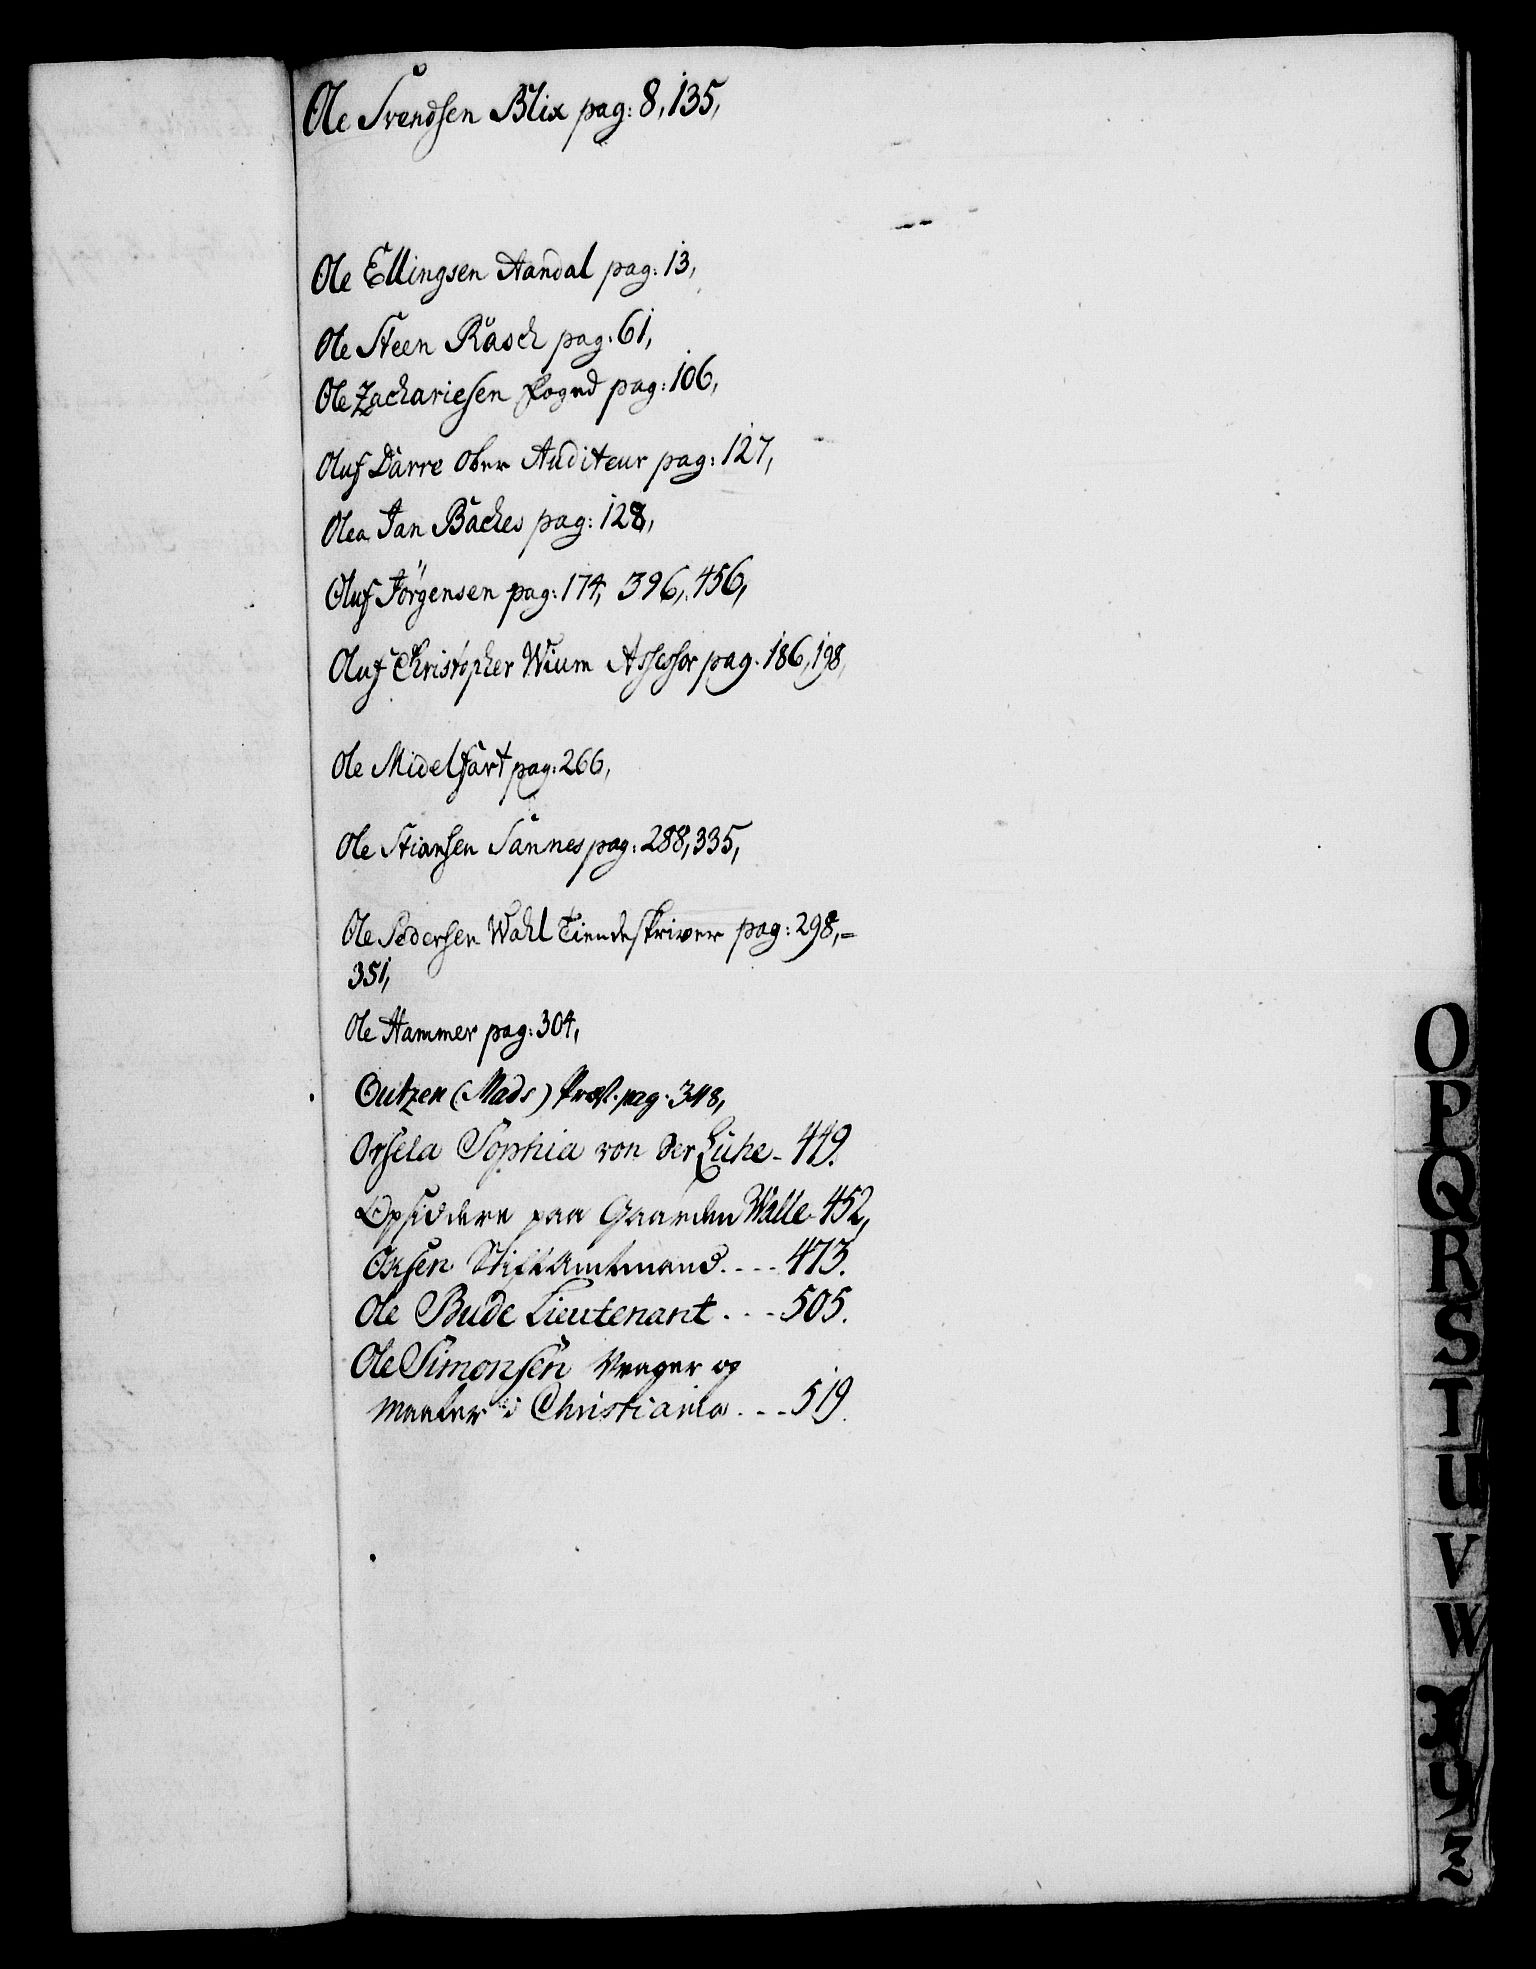 Ole Svendsen Blix pag: 8, 135,
Ole Ellingsen Aandal pag: 13,
Ole Steen Rasch pag: 61,
Ole Zachariesen Fogned pag: 106,
Oluf Darre Ober Auditeur pag: 127,
Olea Jan Backes pag: 128,
Oluf Jörgensen pag: 174, 396, 456,
Oluf Christopher Wium Assessor pag. 186, 198,
Ole Midelfart pag: 266,
Ole Stiansen Sannes pag: 288, 335,
Ole Pedersen Wahl Tiendeskriver pag: 298,=
351,
Ole Hammer pag: 304,
Outzen (Mads) Præst. pag. 348,
Orsela Sophia von der Lühe - 449.
Opsiddere paa Gaarden Walle 452,
Oxsen Stiftamtmand. - - - 473.
Ole Bude Lieutenant . - - 505.
Ole Simonsen Vrager og
Maaler i Christiania . - - 519.
O
P
Q
R
S
T
U
V
W
X
Y
Z